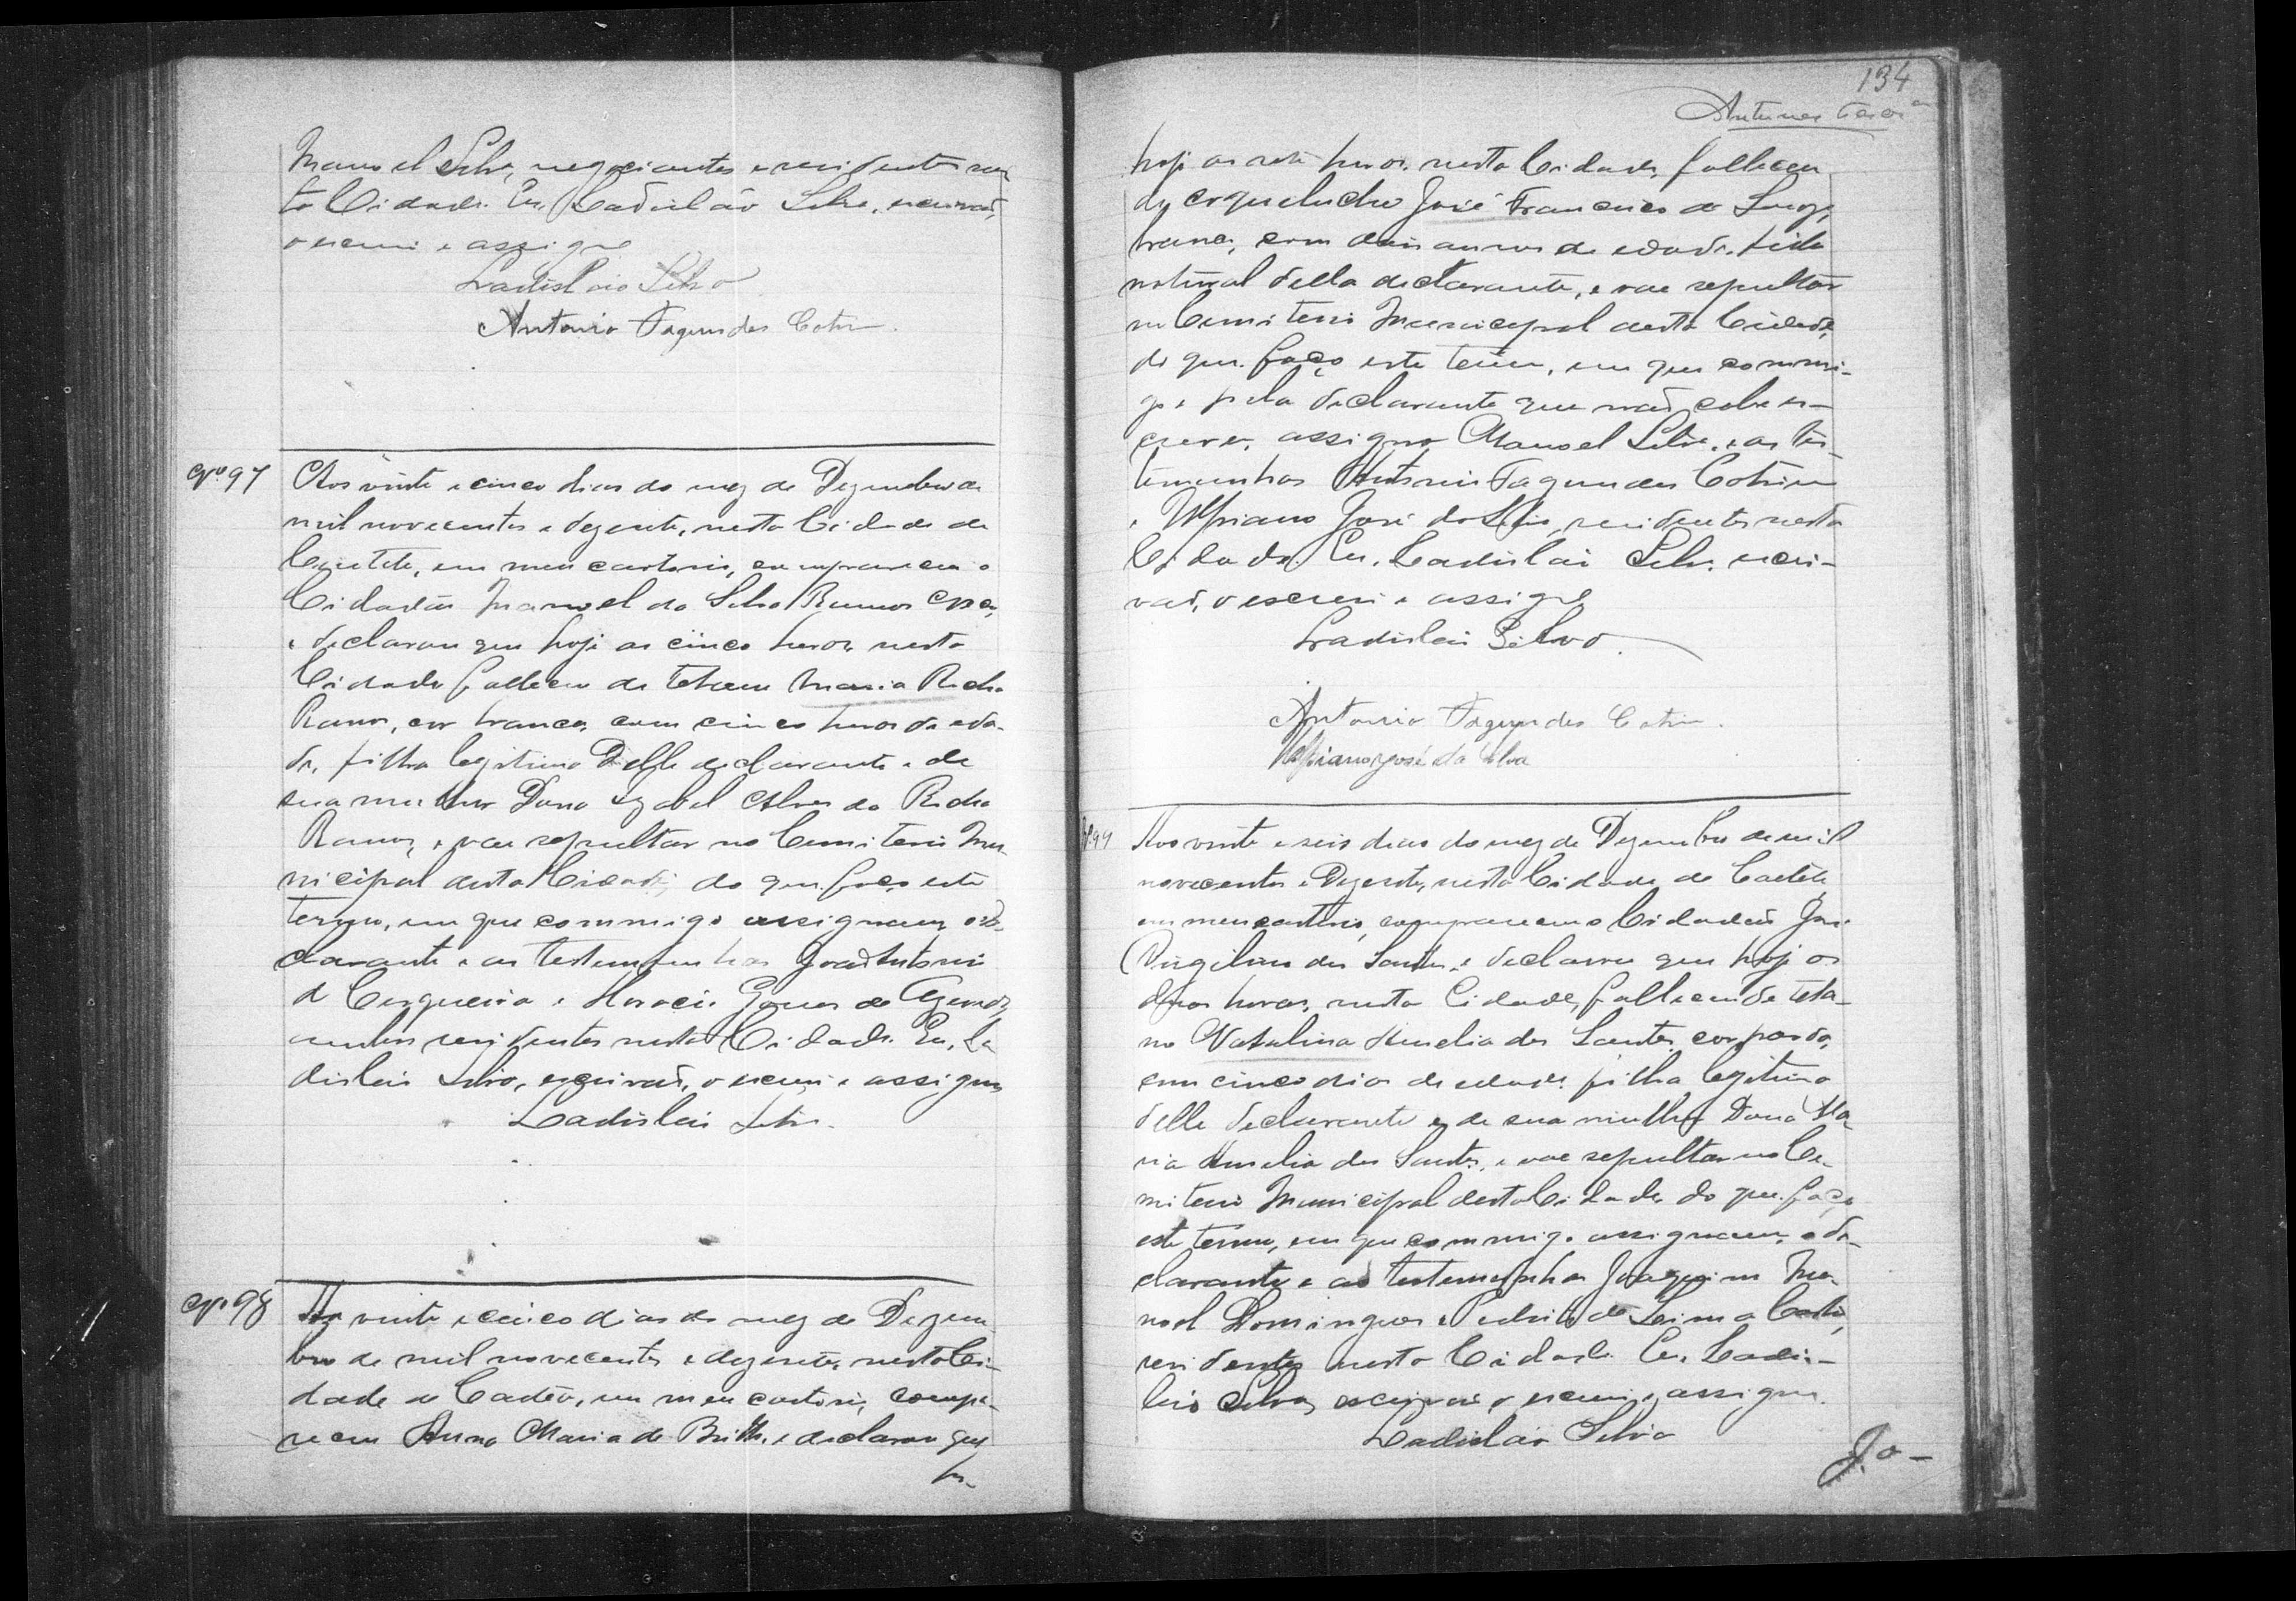 Manoel Silva, negociantes e residentes nes
ta Cidade. Eu, Ladislão Silva, escrivaõ,
o escrevi e assigno
Ladislão Silva
Antonio Fagundes Cotrim.
Nº 97 Aos vinte e cinco dias do mez de Dezembro de
mil novecentos e dezesete, nesta Cidade de
Caetité, em meu cartorio, compareceu o
Cidadão Manoel da Silva Ramos
e declarou que hoje as cinco horas nesta
Cidade falleceu de tetano Maria Rocha
Ramos, cor branca, com cinco horas de eda-
de, filha legitima delle declarante e de
sua mulher Dona Izabel Alves da Rocha
Ramos, e vae sepultar no Cemiterio Mu-
nicipal desta Cidade, do que faço este
termo, em que commigo assignam o de-
clarante e as testemunhas João Antonio
de Cerqueira e Horacio Gomes de
ambos residentes nesta Cidade. Eu, La
dislão Silva, escrivaõ, o escrevi e assigno
Ladislão Silva.
Nº 98 Aos vinte e cinco dias do mez de Dezem
bro de mil novecentos e dezesete, nesta Ci-
dade de Caetité, em meu cartorio, compa-
receu Anna Maria de Britto, e declarou que
ho-
134
Antunes
hoje as sete horas, nesta Cidade, falleceu
de coqueluche José Francisco de Souza,
branco, com dois annos de edade, filho
natural della declarante, e vae sepultar
no Cemiterio Municipal desta Cidade,
do que faço este termo, em que commi-
go e pela declarante que naõ sabe es-
crever, assigna Manoel Silva, e as tes-
temunhas Antonio Fagundes Cotrim
e Ulpiano José da Silva, residentes nesta
Cidade. Eu, Ladislão Silva, escri-
vaõ, o escrevi e assigno
Ladislão Silva.
Antonio Fagundes Cotrim.
Ulpiano José da Silva
Nº 99 Aos vinte e seis dias do mez de Dezembro de mil
novecentos e Dezesete, nesta Cidade de Caetité,
em meu cartorio, compareceu o Cidadaõ José
Virgilino dos Santos, e declarou que hoje as
duas horas, nesta Cidade, falleceu de teta-
no Natalina Amelia dos Santos, cor parda,
com cinco dias de edade, filha legitima
delle declarante e de sua mulher Dona Ma
ria Amelia dos Santos, e vae sepultar no Ce-
miterio Municipal desta Cidade, do que faço
este termo, em que commigo assignam, o de-
clarante e as testemunhas Joaquim Ma-
noel Domingues e Pedrito de Lima
residentes nesta Cidade. Eu, Ladis-
lão Silva, escrivaõ o escrevi e assigno.
Ladislão Silva
Jo-